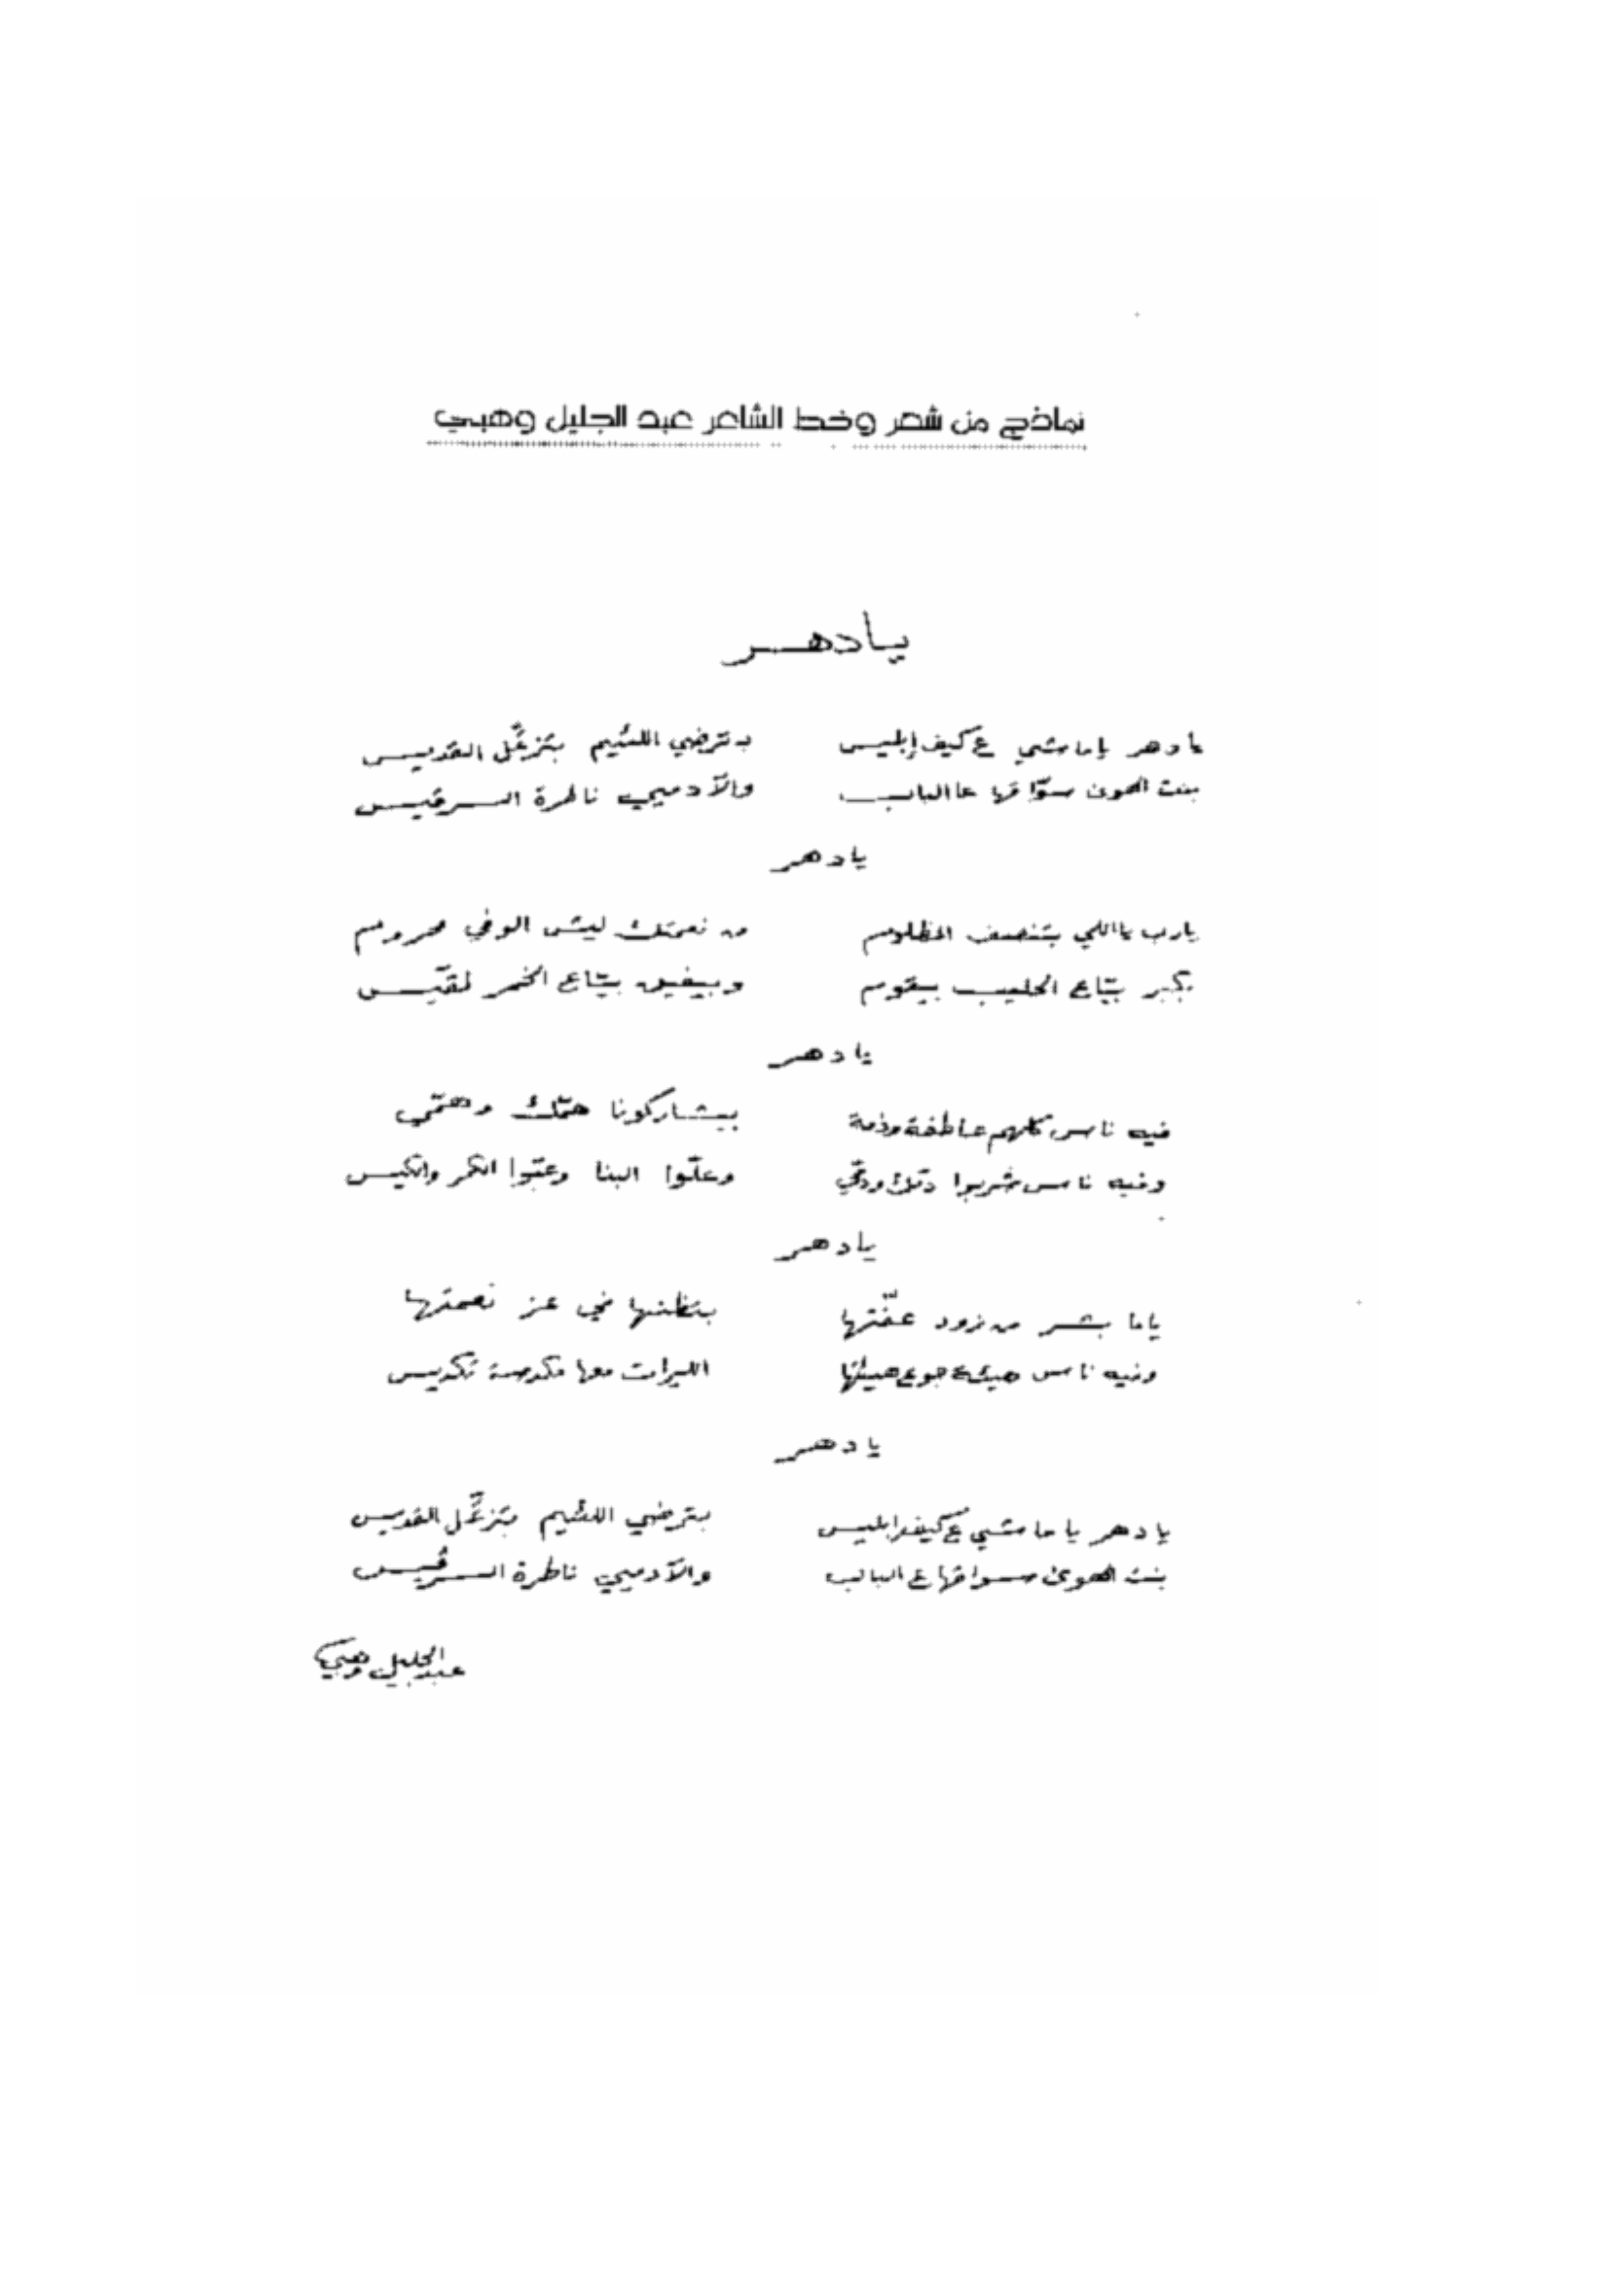 نماذج من شعر وخط الشاعر عبد الجليل وهبي
يا دهر
يا دهر ياما مشي ع كيف إبليس بترضي اللئيم بتزعّل القديس
بنت الهوى سوّاقها عا الباب والآدمي ناطرة السرفيس
يا دهر
يا رب يااللي بتنصف المظلوم من نعمتك ليش الوفي محروم
بكير بيّاع الحليب بيقوم وبيفيق بيّاع الخمر لقّيس
يا دهر
فيه ناس كلهم عاطفة وذمة بيشاركونا همّك وهمّي
وفيه ناس شربوا دمّك ودمّي وعلّوا البنا وعبّوا الكمر والكيس
يا دهر
ياما بشر من زود عفّتها بتظنها في عز نعمتها
وفيه ناس ميتة جوع هيئتها الليرات معها مكدسة تكديس
يا دهر
يا دهر ياما مشي ع كيف إبليس بترضي اللئيم بتزعّل القديس
بنت الهوى سواقها ع الباب والآدمي ناطرة السرفيس
عبد الجليل وهبي